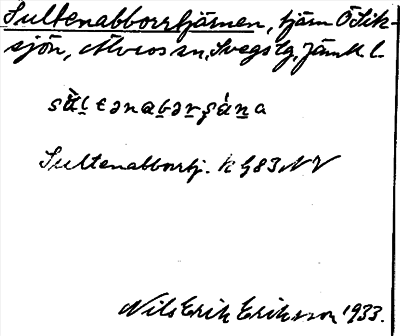 Sultenabborrtjärnen, tjärn Ö Lik-
sjön, Älvros sn, Svegs tg, Jämtl. l.
sùltǝnabǝrʂána
Sultenabborrtj. k G83 NV
Nils Erik Eriksson 1933.